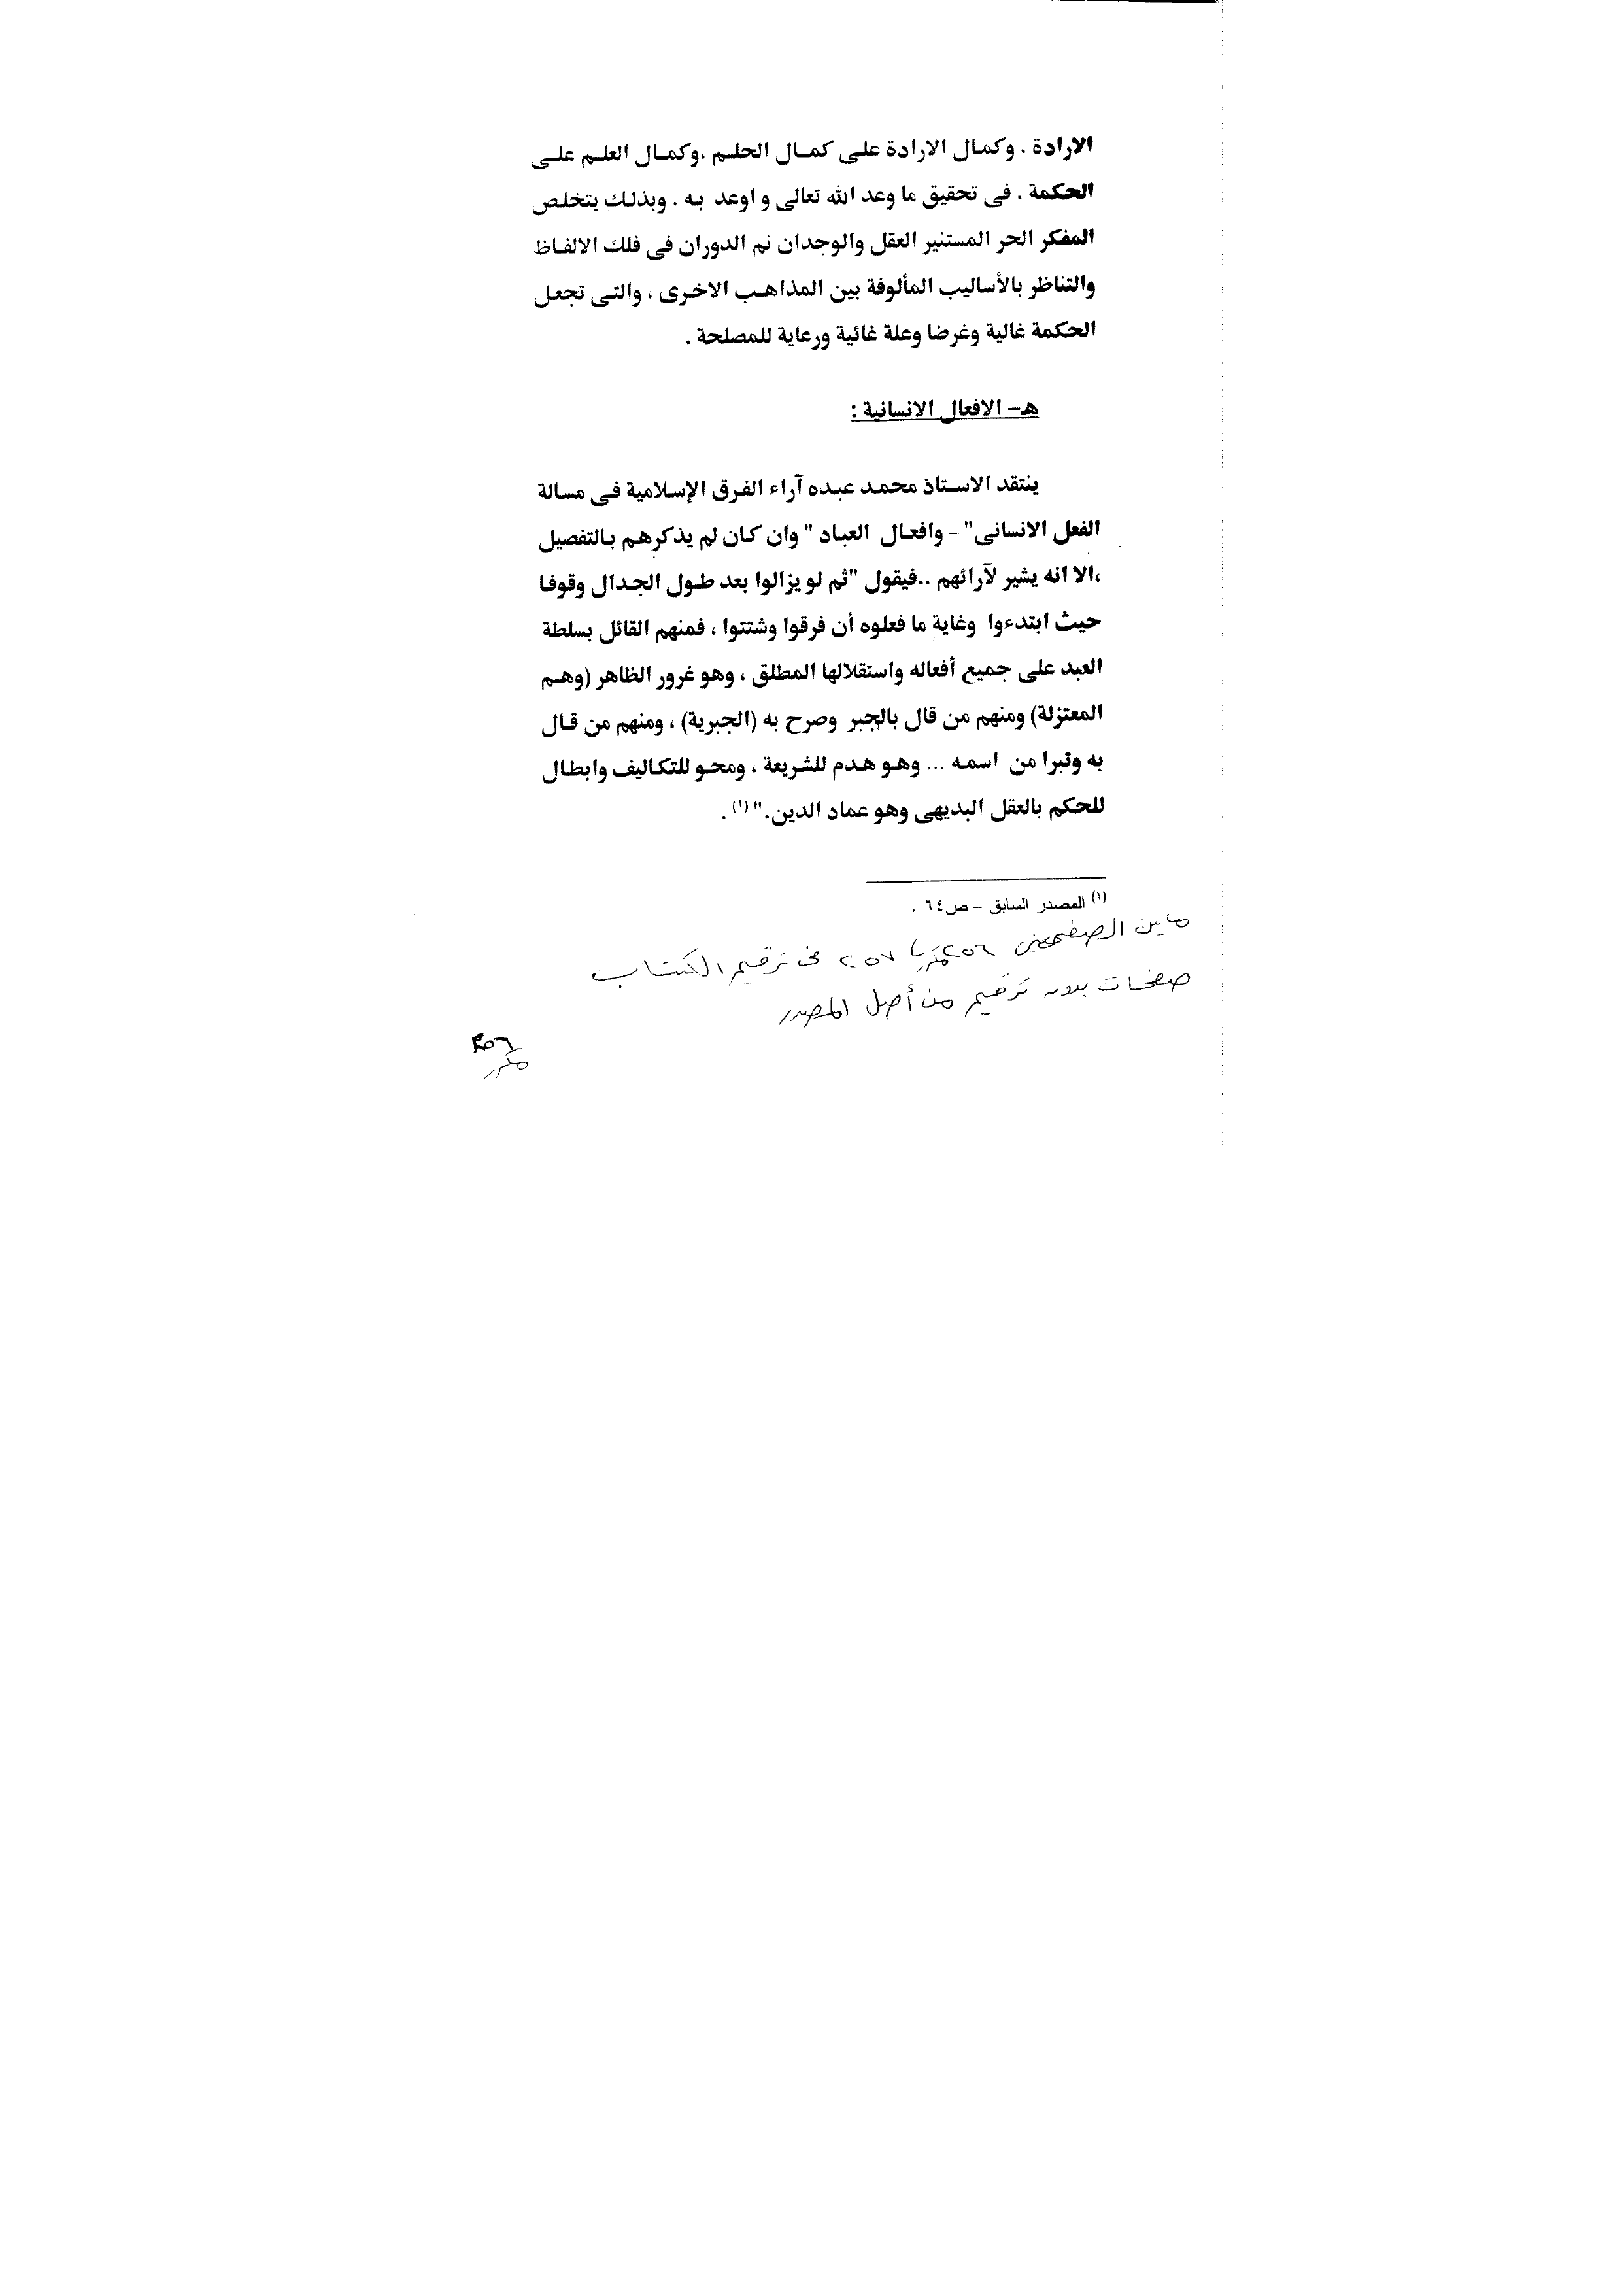 الارادة ، وكمال الارادة على كمال الحلم ،وكمال العلم على
الحكمة ، فى تحقيق ما وعد الله تعالى و اوعد به . وبذلك يتخلص
المفكر الحر المستنير العقل والوجدان نم الدوران فى فلك الالفاظ
والتناظر بالأساليب المألوفة بين المذاهب الاخرى ، والتى تجعل
الحكمة غالية وغرضا وعلة غائية ورعاية للمصلحة .
هـ- الافعال الانسانية :
ينتقد الاستاذ محمد عبده آراء الفرق الإسلامية فى مسالة
الفعل الانسانى" - وافعال العباد " وان كان لم يذكرهم بالتفصيل
،الا انه يشير لآرائهم ..فيقول "ثم لو يزالوا بعد طول الجدال وقوفا
حيث ابتدءوا وغاية ما فعلوه أن فرقوا وشتتوا ، فمنهم القائل بسلطة
العبد على جميع أفعاله واستقلالها المطلق ، وهو غرور الظاهر (وهم
المعتزلة) ومنهم من قال بالجبر وصرح به (الجبرية) ، ومنهم من قال
به وتبرا من اسمه ... وهو هدم للشريعة ، ومحو للتكاليف وابطال
للحكم بالعقل البديهى وهو عماد الدين." (١) .
(١) المصدر السابق - ص٦٤ .
ما بين الصفحتين ٢٥٦ ٢٥٧ فى ترقيم الكتاب
صفحات بدون ترقيم من أصل المصدر
٢٥٦
مكرر